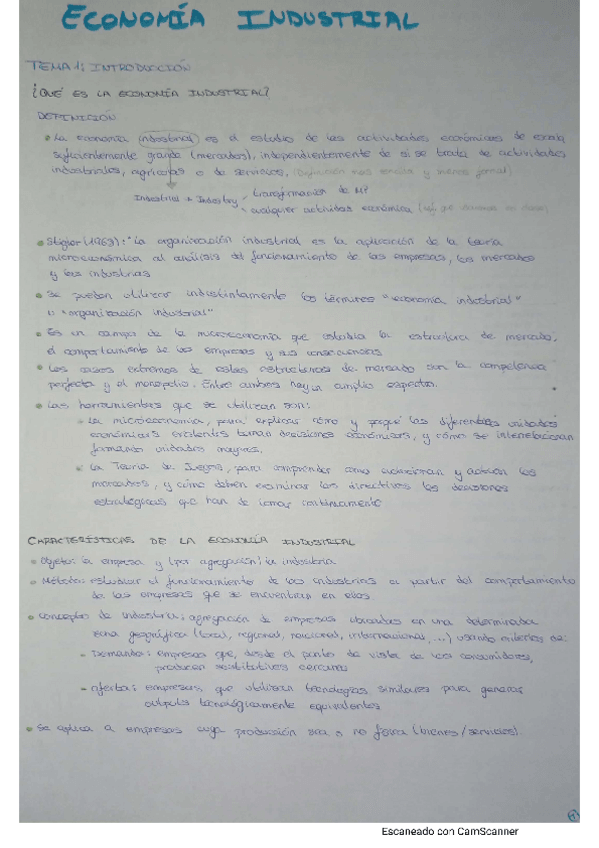 ECONOMÍA INDUSTRIAL
TEMA 1: INTRODUCCIÓN
¿QUÉ ES LA ECONOMÍA INDUSTRIAL?
DEFINICIÓN
La economía industrial es el estudio de las actividades económicas de escala
suficientemente grande (mercados), independientemente de si se trata de actividades
industriales, agrícolas o de servicios, (definición más sencilla y menos formal)
Industrial ≠ Industry transformación de MP
cualquier actividad económica
Stigler (1968): "La organización industrial es la aplicación de la teoría
microeconómica al análisis del funcionamiento de las empresas, los mercados
y las industrias
Se pueden utilizar indistintamente los términos "economía industrial"
u "organización industrial"
Es un campo de la microeconomía que estudia la estructura de mercado,
el comportamiento de las empresas y sus consecuencias
Los casos extremos de estas estructuras de mercado son la competencia
perfecta y el monopolio. Entre ambos hay un amplio espectro.
Las herramientas que se utilizan son:
La microeconomía, para explicar cómo y porqué las diferentes unidades
económicas existentes toman decisiones económicas, y cómo se interrelacionan
formando unidades mayores.
La Teoría de Juegos, para comprender cómo evolucionan y actúan los
mercados, y cómo deben examinar los directivos las decisiones
estratégicas que han de tomar continuamente
CARACTERÍSTICAS DE LA ECONOMÍA INDUSTRIAL
Objeto: la empresa y (por agregación) la industria
Método: estudiar el funcionamiento de las industrias a partir del comportamiento
de las empresas que se encuentran en ellas
Concepto de industria: agregación de empresas ubicadas en una determinada
zona geográfica (local, regional, nacional, internacional, ...) usando criterios de:
- Demanda: empresas que, desde el punto de vista de los consumidores,
producen sustitutivos cercanos
- Oferta: empresas que utilizan tecnologías similares para generar
outputs tecnológicamente equivalentes
Se aplica a empresas cuya producción sea o no física (bienes/servicios).
Escaneado con CamScanner